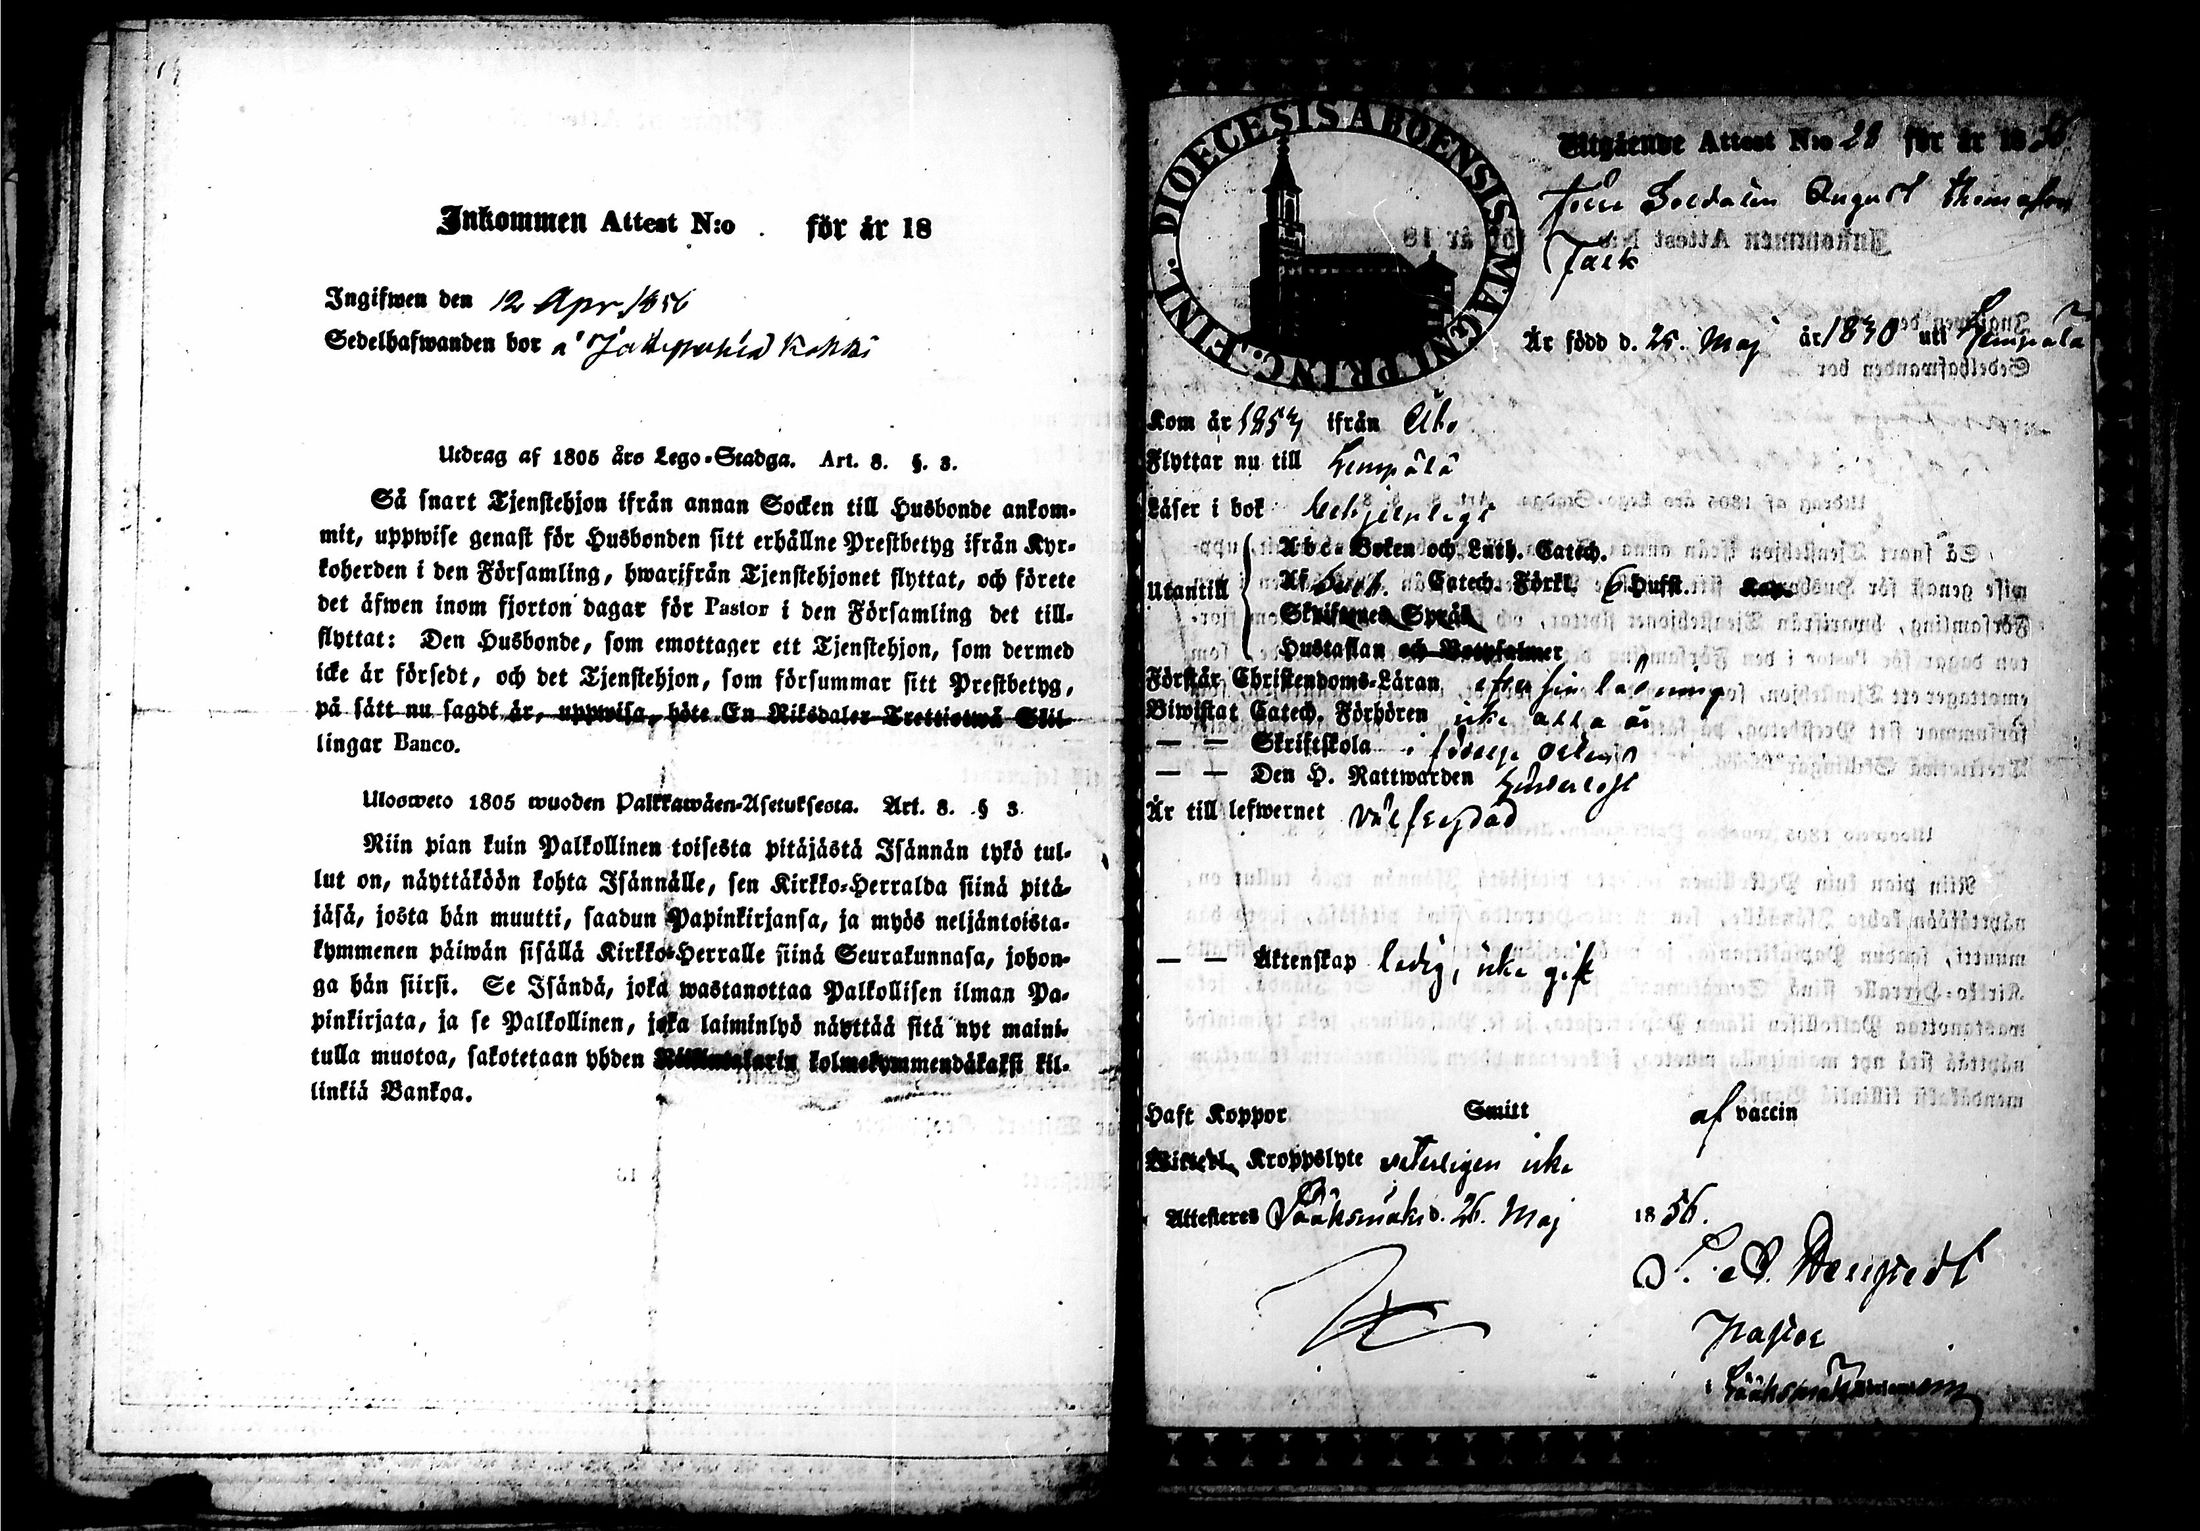 Inkommen Attest N:o för år 18
Ingifwen den 12 Apr. 1856
Sedelhafwanden bor å
Utdrag af 1805 års Lego-Stadga. Art. 8. §. 3.
Så snart Tjenstehjon ifrån annan Socken till Husbonde ankom-
mit, uppwise genast för Husbonden sitt erhållne Prestbetyg ifrån Kyr-
koherden i den Församling, hwarifrån Tjenstehjonet flyttat, och förete
det äfwen inom fjorton dagar för Pastor i den Församling det till-
flyttat: Den Husbonde, som emottager ett Tjenstehjon, som dermed
icke är försedt, och det Tjenstehjon, som försummar sitt Prestbetyg,
på sätt nu sagdt är, uppwisa, böte En Riksdaler Trettiotwå Skil-
lingar Banco.
Ulosweto 1805 wuoden Palkkawäen-Asetuksesta. Art. 8. § 3.
Niin pian kuin Palkollinen toisesta pitäjästä Isännän tykö tul-
lut on, näyttäköön kohta Isännälle, sen Kirkko-Herralda siinä pitä-
jäsä, josta hän muutti, saadun Papinkirjansa, ja myös neljäntoista-
kymmenen päiwän sisällä Kirkko-Herralle siinä Seurakunnasa, johon-
ga hän siirsi. Se Isändä, joka wastanottaa Palkollisen ilman Pa-
pinkirjata, ja se Palkollinen, joka laiminlyö näyttää sitä nyt maini-
tulla muotoa, sakotetaan yhden Riikintalarin kolmekymmendäkaksi kil-
linkiä Bankoa.
DIOECESIS ABOENSIS MAGNI PRINC: FINL.
Utgående Attest N:o 28 för år 18
Förre Soldaten August Thomasson
Falk
Är född d. 25. Maj år 1830 uti Lempälä
Kom år 1854 ifrån Åbo
Flyttar nu till Lempälä
Läser i bok behjelpligt
Utantill
Abc-Boken och Luth. Catech.
Af Catech. Förkl. 6 Hufst.
Skriftenes Språk
Hustaflan och Botpsalmer
Förstår Christendoms-Läran efter sin läsning
Biwistat Catech. Förhören icke alla år
— — Skriftskola i
— — Den H. Nattwarden
Är till lefwernet välfrejdad
— — Äktenskap ledig, icke gift
Haft Koppor Smitt af vaccin
Kroppslyte veterligen icke
Attesteres Sääksmäki d. 26. Maj 1856.
Pastor
i Sääksmäki